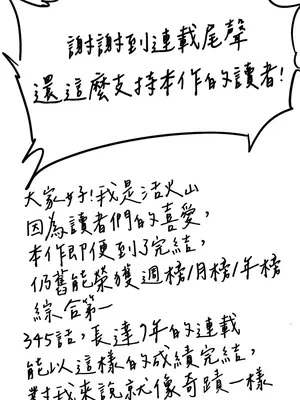 謝謝到連載尾聲
還這麼支持本作的讀者!
大家好!我是活火山
因為讀者們的喜愛,
本作即便到了完結,
仍舊能榮獲週榜/月榜/年榜
綜合第一
345話,長達7年的連載
能以這樣的成績完結,
對我來說就像奇蹟一樣